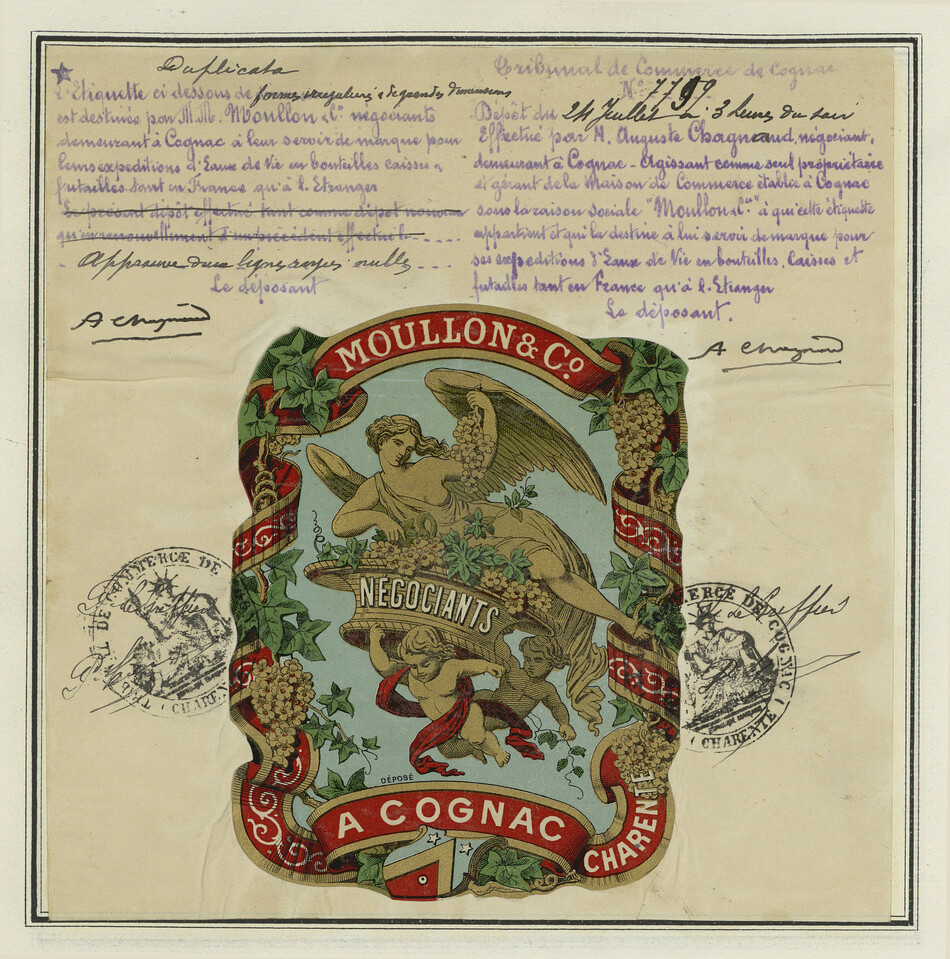 Duplicata
L'Etiquette ci dessous de forme irrégulière & de grandes dimensions
est destinée par M.M. Moullon & Co négociants
demeurant à Cognac à leur servir de marque pour
leurs expeditions d'Eaux de Vie en bouteilles caisses &
futailles tant en France qu'à l'Etranger
Le présent dépôt effectué tant comme dépot nouveau
qu'en renouvellement d'un précédent effectué le
Approuvé deux lignes rayées nulles
Le déposant
A Chagnaud
Tribunal de Commerce de Cognac
No 7799
Dépôt du 24 Juillet à 3 heures du soir
Effectué par M. Auguste Chagneaud, négociant,
demeurant à Cognac - Agissant comme seul propriétaire
et gérant de la Maison de Commerce établie à Cognac
sous la raison sociale "Moullon & Cie" à qui cette étiquette
appartient et qui la destine à lui servir de marque pour
ses expeditions d'Eaux de Vie en bouteilles, Caisses et
futailles tant en France qu'à l'Etranger
Le déposant.
A Chagnaud
MOULLON & Co.
NÉGOCIANTS
DÉPOSÉ
A COGNAC
CHARENTE
L DE COMMERCE DE
(CHARENTE
Le Greffier
MERCE DE COGNAC
(CHARENTE)
Le Greffier